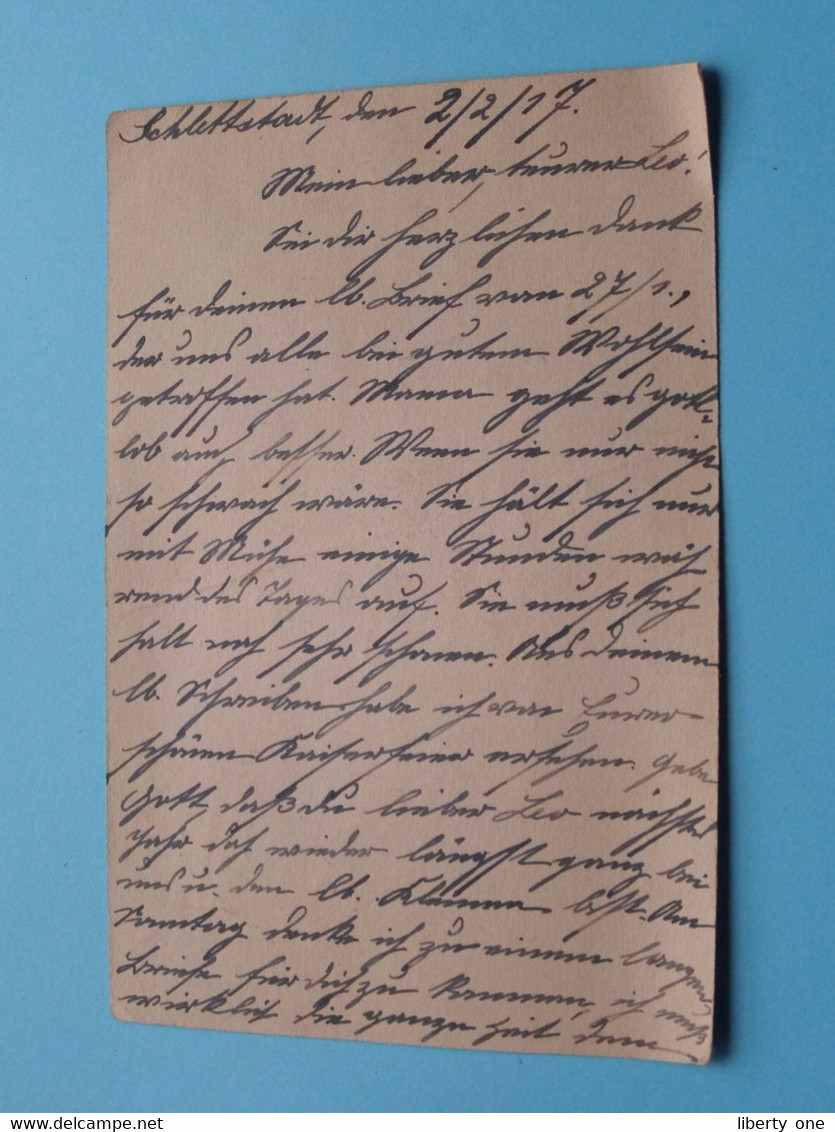 Schlettstadt, den 2/2/17.
Mein lieber, teurer Leo!
Sei dir herzlichen Dank
für deinen lb. Brief vom 27/1.,
der uns alle bei gutem Wohlsein
getroffen hat. Mama geht es gott-
lob auch besser. Wenn sie nur nicht
so schwach wäre. Sie hält sich nur
mit Mühe einige Stunden wäh
rend des Tages auf. Sie muß sich
halt noch sehr schonen. Aus deinem
lb. Schreiben habe ich von Eurer
schönen Kaiserfeier ersehen. Gebe
Gott, daß du lieber Leo nächstes
Jahr doch wieder längst ganz bei
uns u. den lb. Kleinen bist. Am
Sonntag denke ich zu einem langen
Briefe für dich zu kommen, ich muß
wirklich die ganze Zeit dem
delcampe.net
liberty one